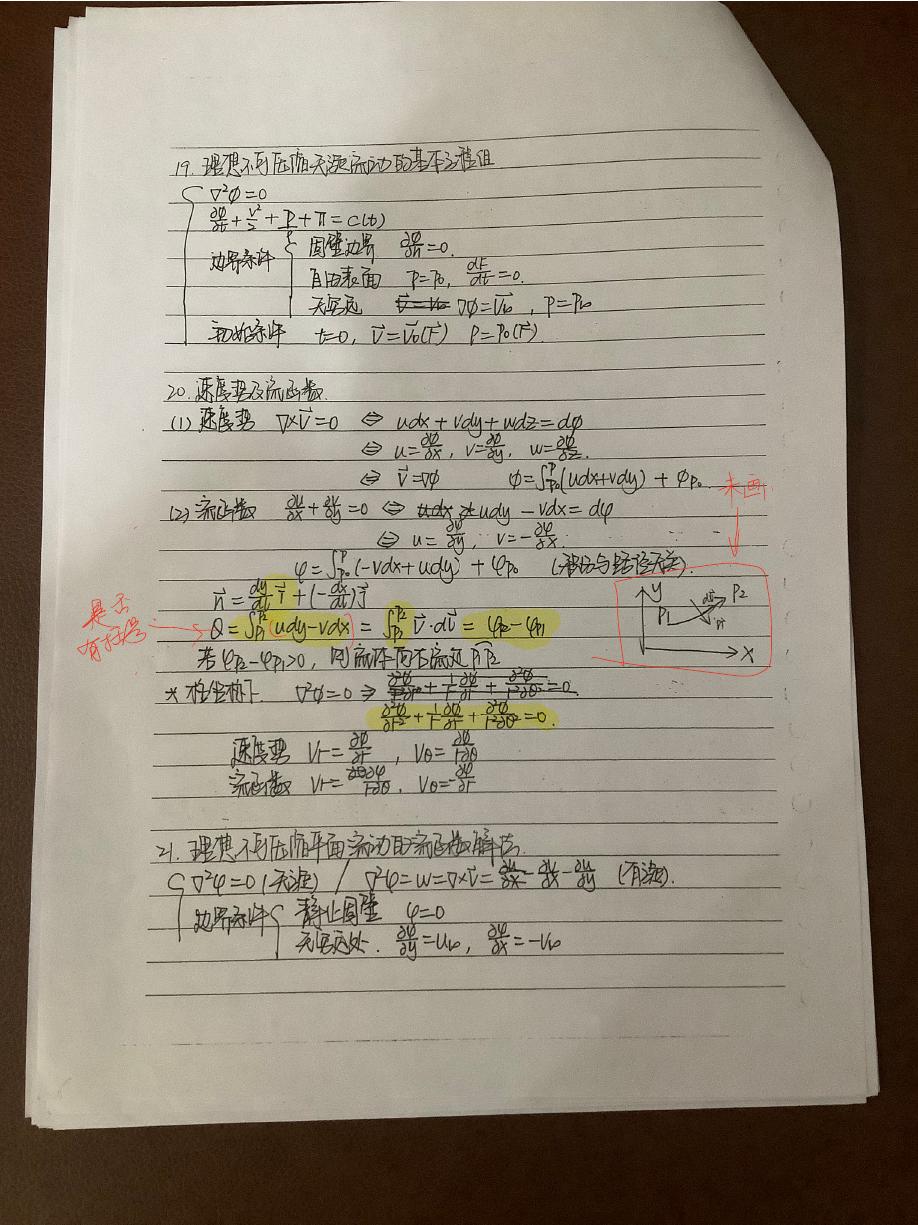 19. 理想不可压缩无旋流动的基本方程组
∇²φ=0
∂φ/∂t + V²/2 + P/ρ + π = C(t)
边界条件 { 固壁边界 ∂φ/∂n=0.
自由表面 P=P₀, dF/dt=0.
无穷远 ∇φ=V⃗∞, P=P∞
初始条件 t=0, V⃗=V⃗₀(r⃗) P=P₀(r⃗)
20. 速度势及流函数.
(1) 速度势 ∇×V⃗=0 ⇔ udx+vdy+wdz=dφ
⇔ u=∂φ/∂x, v=∂φ/∂y, w=∂φ/∂z.
⇔ V⃗=∇φ φ=∫_{P₀}^{P}(udx+vdy)+φ_{P₀}
未画
(2) 流函数 ∂u/∂x+∂v/∂y=0 ⇔ udy-vdx=dψ
⇔ u=∂ψ/∂y, v=-∂ψ/∂x.
ψ=∫_{P₀}^{P}(-vdx+udy)+ψ_{P₀} (积分与路径无关).
n⃗=dy/dl i⃗+(-dx/dl)j⃗
y P₁ P₂ dl⃗ n⃗ x
是否有括号
Q=∫_{P₁}^{P₂}(udy-vdx)=∫_{P₂}^{P₂} V⃗·dl⃗=ψ_{P₂}-ψ_{P₁}
若ψ_{P₂}-ψ_{P₁}>0, 则流体自左流过P₁P₂
* 柱坐标下. ∇²φ=0 ⇒
∂²φ/∂r²+1/r ∂φ/∂r+∂²φ/r²∂θ²=0.
速度势 Vr=∂φ/∂r, Vθ=∂φ/r∂θ
流函数 Vr=∂ψ/r∂θ, Vθ=-∂ψ/∂r
21. 理想不可压缩平面流动的流函数解法.
∇²ψ=0 (无旋) / ∇²ψ=w=∇×V⃗=∂v/∂x-∂u/∂y (有旋).
边界条件 { 静止固壁 ψ=0
无穷远处. ∂ψ/∂y=u∞, ∂ψ/∂x=-v∞